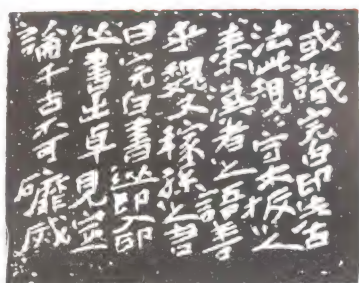 或譏完白印失古
法此規〻守木板之
秦漢者之語善
乎魏丈稼孫之言
曰完白書從印入印
從書出卓見定
論千古不可磨滅